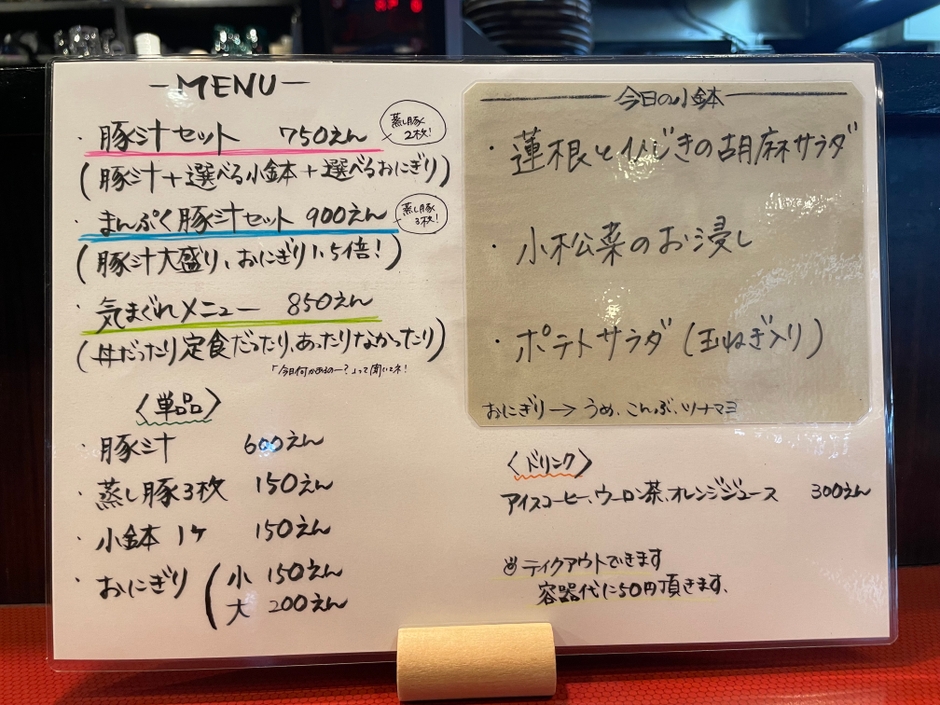 －MENU－
・豚汁セット 750えん
蒸し豚
2枚!
(豚汁+選べる小鉢+選べるおにぎり)
・まんぷく豚汁セット 900えん
蒸し豚
3枚!
(豚汁大盛り、おにぎり1.5倍!)
・気まぐれメニュー 850えん
(丼だったり定食だったり、あったりなかったり)
「今日何があるのー?」って聞いてネ!
〈単品〉
・豚汁 600えん
・蒸し豚3枚 150えん
・小鉢 1ケ 150えん
・おにぎり(小 150えん
大 200えん
今日の小鉢
・蓮根とひじきの胡麻サラダ
・小松菜のお浸し
・ポテトサラダ(玉ねぎ入り)
おにぎり→うめ、こんぶ、ツナマヨ
〈ドリンク〉
アイスコーヒー、ウーロン茶、オレンジジュース 300えん
テイクアウトできます
容器代に50円頂きます。